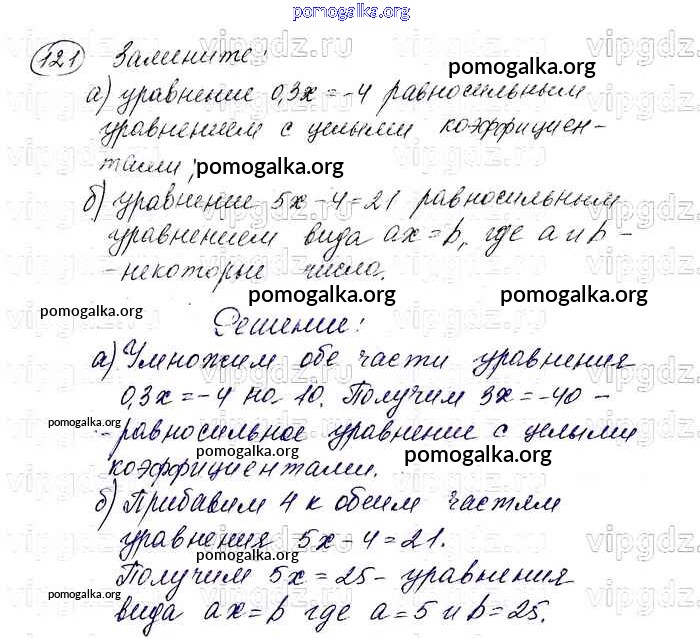 pomogalka.org
121 Замените:
а) уравнение 0,3x = -4 равносильным
pomogalka.org
уравнением с целыми коэффициен-
тами;
pomogalka.org
б) уравнение 5x - 4 = 21 равносильным
уравнением вида ax = b, где a и b -
- некоторые числа.
pomogalka.org pomogalka.org pomogalka.org
Решение:
а) Умножим обе части уравнения
0,3x = -4 на 10. Получим 3x = -40 -
pomogalka.org
- равносильное уравнение с целыми
pomogalka.org pomogalka.org
коэффициентами.
б) Прибавим 4 к обеим частям
уравнения 5x - 4 = 21.
pomogalka.org
Получим 5x = 25 - уравнения
pomogalka.org
вида ax = b где a = 5 и b = 25.
pomogalka.org